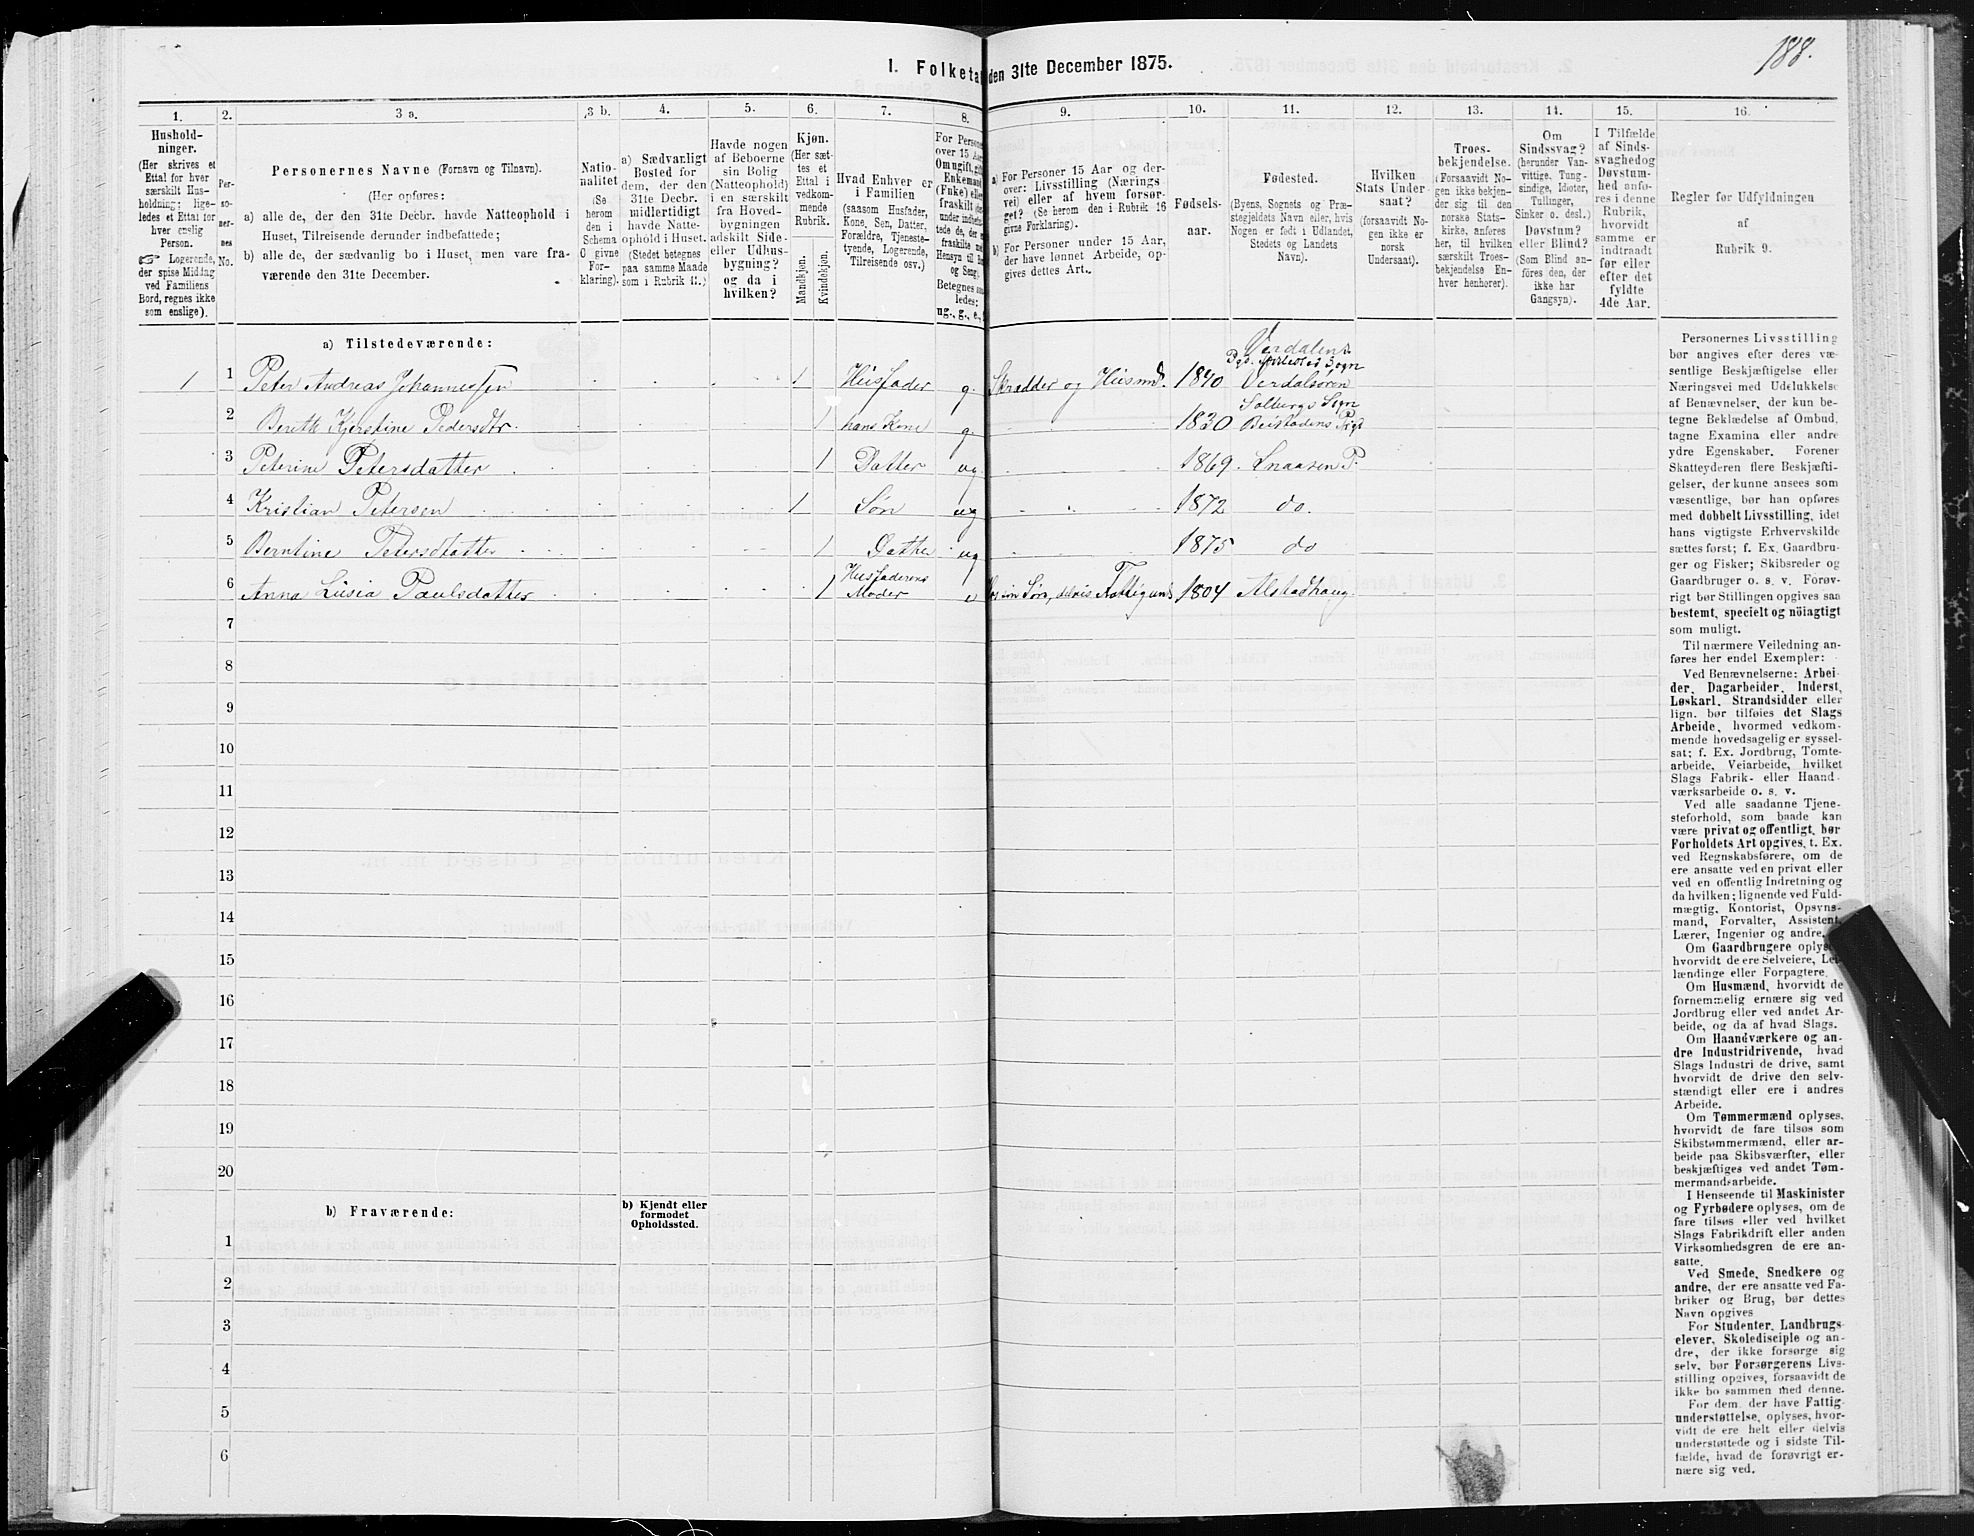 188.
1. Folketa den 31te December 1875.
1.
Hushold-
ninger.
(Her skrives et
Ettal for hver
særskilt Hus-
holdning; lige-
ledes et Ettal for
hver enslig
Person.
☞ Logerende,
der spise Middag
ved Familiens
Bord, regnes ikke
som enslige).
2.
Per-
so-
ner-
nes
No.
3 a.
Personernes Navne (Fornavn og Tilnavn).
(Her opføres:
a) alle de, der den 31te Decbr. havde Natteophold i
Huset, Tilreisende derunder indbefattede;
b) alle de, der sædvanlig bo i Huset, men vare fra-
værende den 31te December.
3 b.
Natio-
nalitet
(Se
herom
den i
Schema
O givne
For-
klaring).
4.
a) Sædvanligt
Bosted for
dem, der den
31te Decbr.
midlertidigt
havde Natte-
ophold i Huset.
(Stedet betegnes
paa samme Maade
som i Rubrik 11.)
5.
Havde nogen
af Beboerne
sin Bolig
(Natteophold)
i en særskilt
fra Hoved-
bygningen
adskilt Side-
eller Udhus-
bygning?
og da i
hvilken?
6.
Kjøn.
(Her sæt-
tes et
Ettal i
vedkom-
mende
Rubrik.
Mandkjøn.
Kvindekjøn.
7.
Hvad Enhver er
i Familien
(saasom Husfader,
Kone, Søn, Datter,
Forældre, Tjeneste-
tyende, Logerende,
Tilreisende osv.)
8.
For Persone
over 15 Aar
Omugift, gif
Enkemand
(Enke) elle
fraskilt
under indbefat-
tede de, der e
fraskilte
Hensyn til Bo
og Seng.
Betegnes saa-
ledes:
ug., g., e.,
9.
a) For Personer 15 Aar og der-
over: Livsstilling (Nærings
vei) eller af hvem forsør-
get? (Se herom den i Rubrik 16
givne Forklaring).
b) For Personer under 15 Aar,
der have lønnet Arbeide, op-
gives dettes Art.
10.
Fødsels-
aar.
11.
Fødested.
(Byens, Sognets og Præ-
stegjeldets Navn eller, hvis
Nogen er født i Udlandet,
Stedets og Landets
Navn).
12.
Hvilken
Stats Under-
saat?
(forsaavidt No-
gen ikke er
norsk
Undersaat).
13.
Troes-
bekjendelse.
(Forsaavidt No-
gen ikke bekjen-
der sig til den
norske Stats-
kirke, anføres
her, til hvilken
særskilt Troes-
bekjendelse En-
hver henhører).
14.
Om
Sindssvag?
(herunder Van-
vittige, Tung-
sindige, Idioter,
Tullinger,
Sinker o. desl.)
Døvstum?
eller Blind?
(Som Blind an-
føres den, der
ikke har
Gangsyn).
15.
I Tilfælde
af Sinds-
svaghedog
Døvstum-
hed anfø-
res i denne
Rubrik,
hvorvidt
samme er
indtraadt
før eller
efter det
fyldte
4de Aar.
16.
Regler for Udfyldningen
af
Rubrik 9.
a) Tilstedeværende:
1 1 Peter Andreas Johannessen 1 Husfader g. Skrædder og Husmd. 1840 Verdalens Sogn Verdalsøren
2 Berith Kjerstine Pedersdtr. 1 hans Kone g. 1830 Solbergs Sogn Beistadens Prgd
3 Peterine Petersdatter 1 Datter ug 1869. Snaasen P.
4 Kristian Petersen 1 Søn ug " 1872 do.
5 Berntine Petersdtatter 1 Datter ug 1875 do
6 Anna Lusia Paulsdatter 1 Husfaderens Moder e Søn, delvis Fattigund 1804 Alstadhaug.
7
8
9
10
11
12
13
14
15
16
17
18
19
20
b) Fraværende:
b) Kjendt eller
formodet
Opholdssted.
1
2
3
4
5
6
Personernes Livsstilling
bør angives efter deres væ-
sentlige Beskjæftigelse eller
Næringsvei med Udelukkelse
af Benævnelser, der kun be-
tegne Beklædelse af Ombud,
tagne Examina eller andre
ydre Egenskaber. Forener
Skatteyderen flere Beskjæfti-
gelser, der kunne ansees som
væsentlige, bør han opføres
med dobbelt Livsstilling, idet
hans vigtigste Erhvervskilde
sættes først; f. Ex. Gaardbru-
ger og Fisker; Skibsreder og
Gaardbruger o. s. v. Forøv-
rigt bør Stillingen opgives saa
bestemt, specielt og nöiagtigt
som muligt.
Til nærmere Veiledning an-
føres her endel Exempler:
Ved Benævnelserne: Arbei-
der, Dagarbeider, Inderst,
Løskarl, Strandsidder eller
lign. bør tilføies det Slags
Arbeide, hvormed vedkom-
mende hovedsagelig er syssel-
sat; f. Ex. Jordbrug, Tomte-
arbeide, Veiarbeide, hvilket
Slags Fabrik- eller Haand-
værksarbeide o. s. v.
Ved alle saadanne Tjene-
steforhold, som baade kan
være privat og offentligt, bør
Forholdets Art opgives, t. Ex.
ved Regnskabsførere, om de
ere ansatte ved en privat eller
ved en offentlig Indretning og
da hvilken; lignende ved Fuld-
mægtig, Kontorist, Opsyns-
mand, Forvalter, Assistent,
Lærer, Ingeniør og andre.
Om Gaardbrugere oplyses,
hvorvidt de ere Selveiere, Lei-
lændinge eller Forpagtere.
Om Husmænd, hvorvidt de
fornemmelig ernære sig ved
Jordbrug eller ved andet Ar-
beide, og da af hvad Slags.
Om Haandværkere og an-
dre Industridrivende, hvad
Slags Industri de drive, samt
hvorvidt de drive den selv-
stændigt eller ere i andres
Arbeide.
Om Tømmermænd oplyses,
hvorvidt de fare tilsøs som
Skibstømmermænd, eller ar-
beide paa Skibsværfter, eller
beskjæftiges ved andet Tøm-
mermandsarbeide.
I Henseende til Maskinister
og Fyrbødere oplyses, om de
fare tilsøs eller ved hvilket
Slags Fabrikdrift eller anden
Virksomhedsgren de ere an-
satte.
Ved Smede, Snedkere og
andre, der ere ansatte ved Fa-
briker og Brug, bør dettes
Navn opgives
For Studenter, Landbrugs-
elever, Skoledisciple og an-
dre, der ikke forsørge sig
selv, bør Forsørgerens Livs-
stilling opgives, forsaavidt de
ikke bo sammen med denne.
For dem, der have Fattig-
understøttelse, oplyses, hvor-
vidt de ere helt eller delvis
understøttede og i sidste Til-
fælde, hvad de forøvrigt er-
nære sig ved.